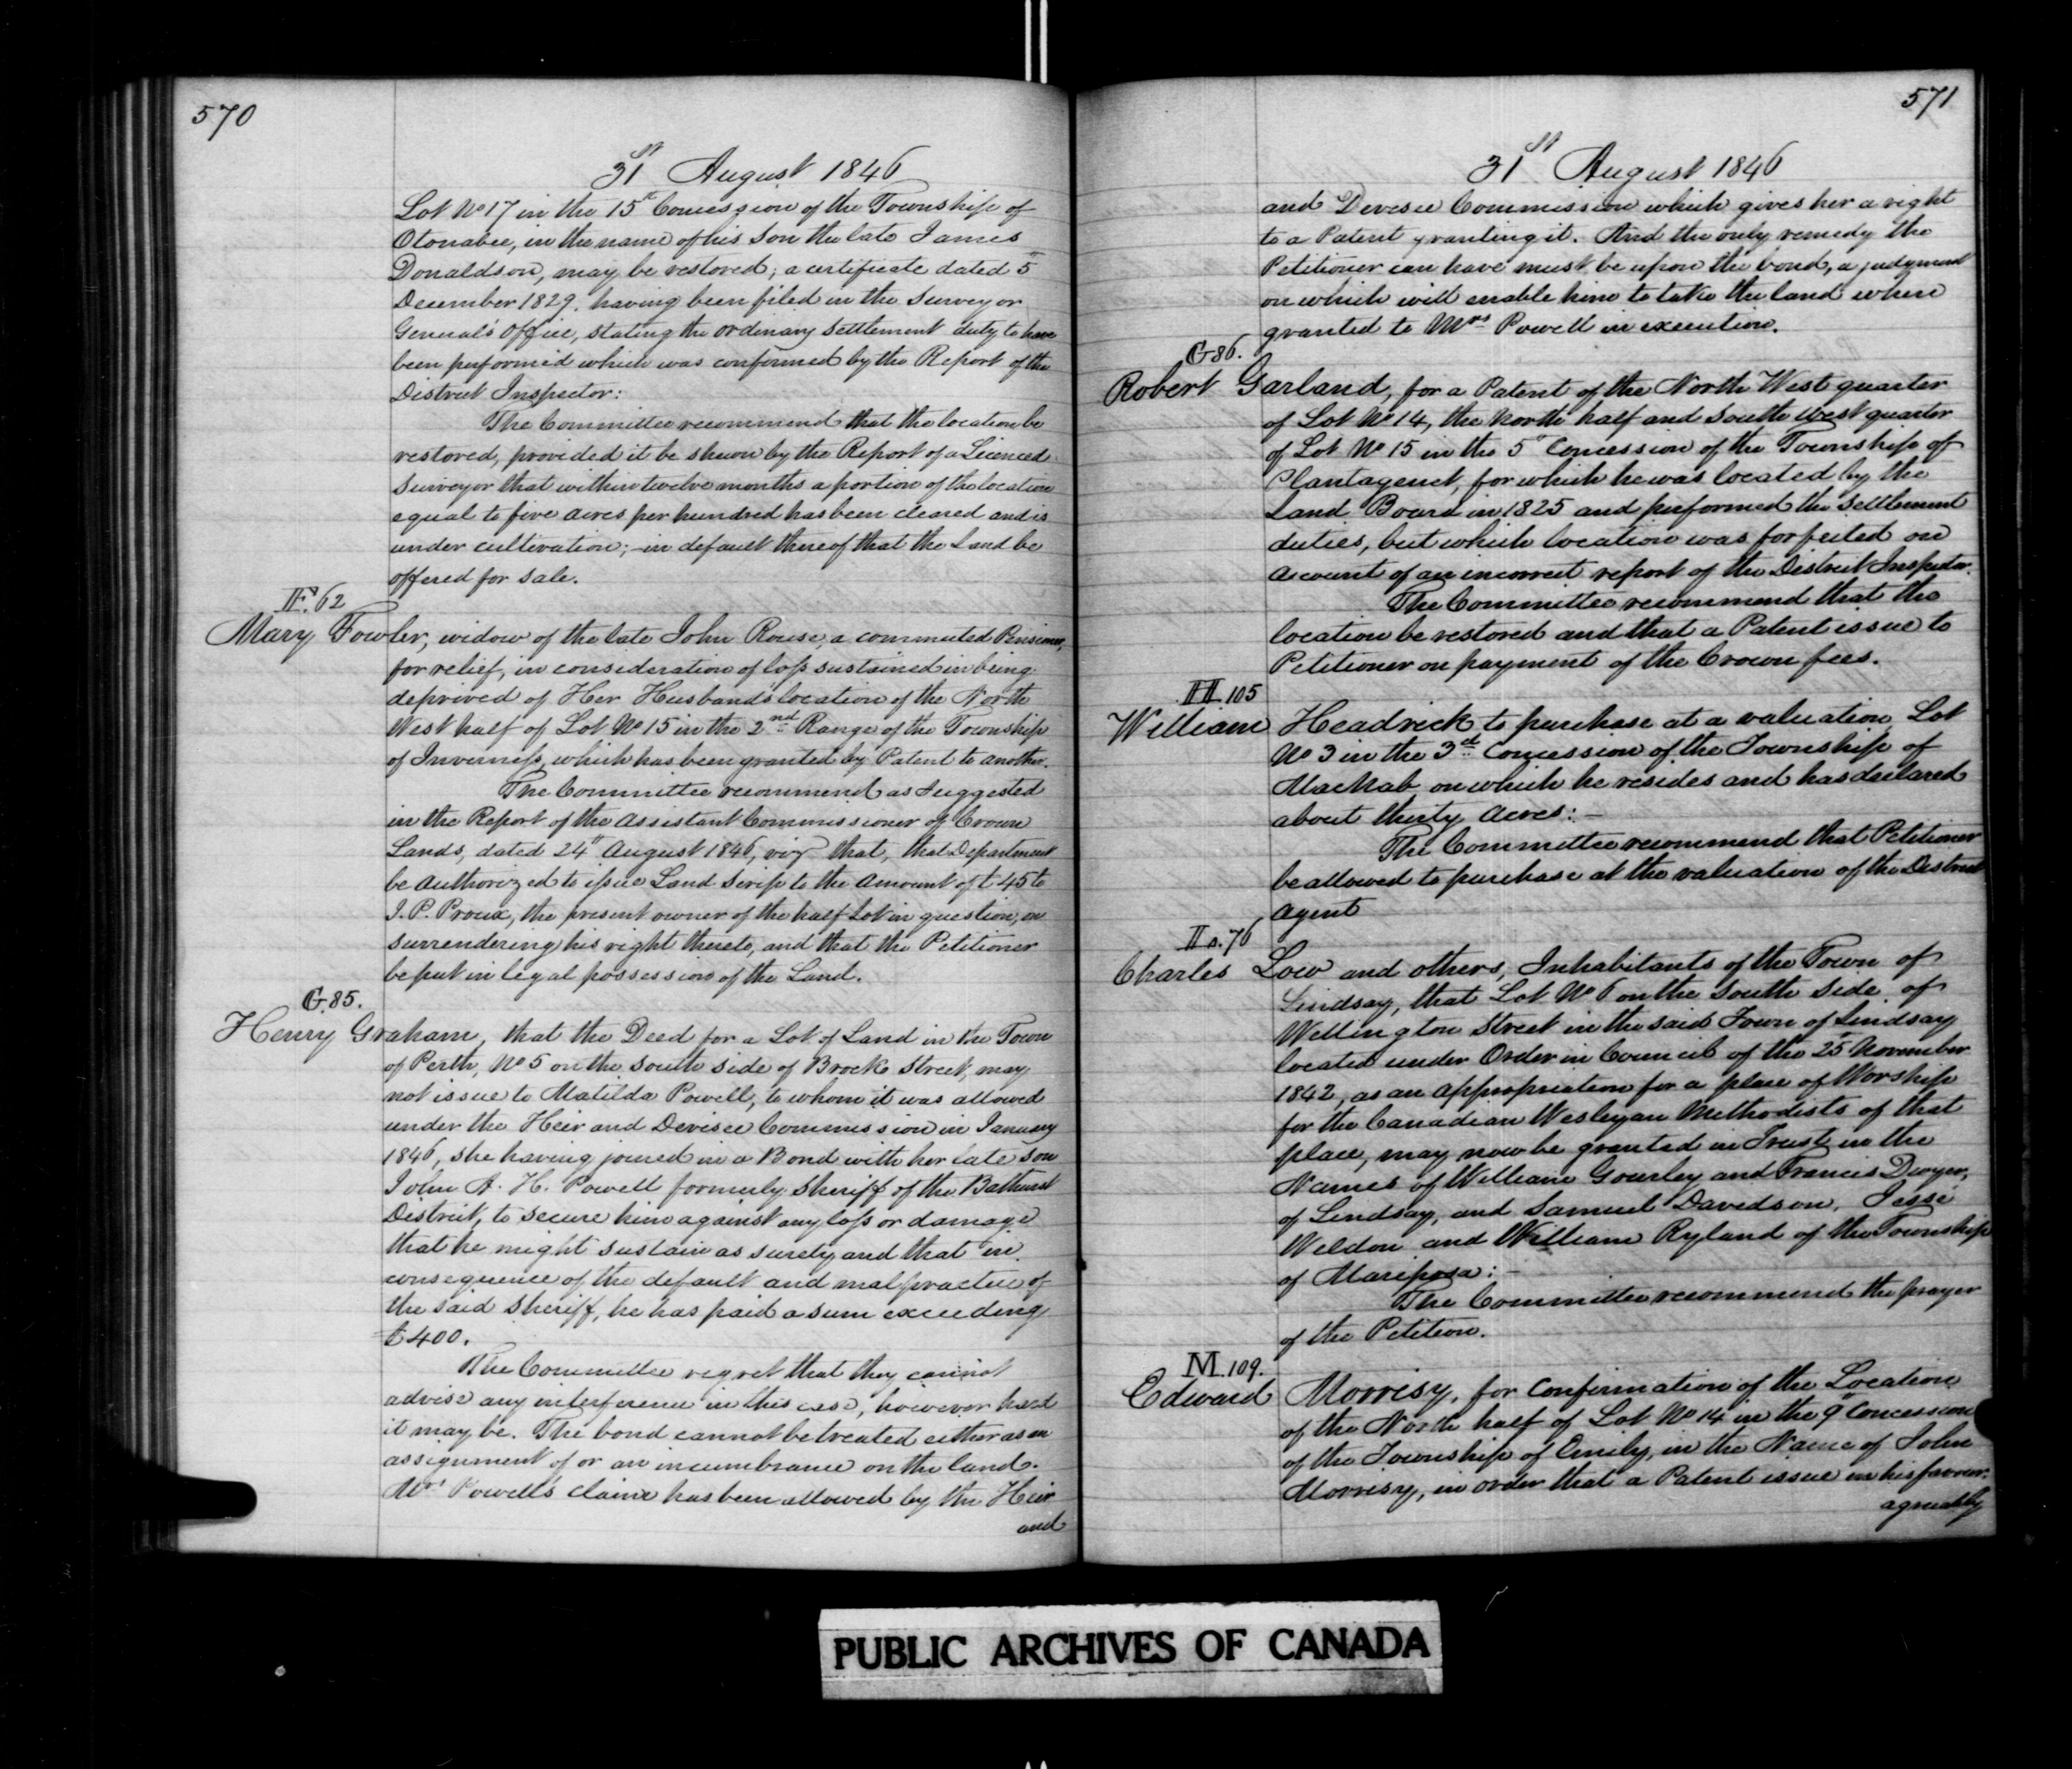 570
31st August 1846
Lot No 17 in the 15th Concession of the Township of
Otonabee, in the name of his Son the late James
Donaldson, may be restored; a certificate dated 5th
December 1829. having been filed in the Surveyor
General's Office, stating the ordinary settlement duty to have
been performed which was confirmed by the Report of the
District Inspector:
The Committee recommend that the location be
restored, provided it be shewn by the Report of a Licenced
Surveyor that within twelve months a portion of the location
equal to five acres per hundred has been cleared and is
under cultivation; - in default thereof that the Land be
offered for sale.
F. 62
Mary Fowler, widow of the late John Rouse, a commuted Pensioner,
for relief, in consideration of loss sustained in being
deprived of Her Husband's location of the North
West half of Lot No 15 in the 2nd Range of the Township
of Inverness, which has been granted by Patent to another.
The Committee recommend as Suggested
in the Report of the Assistant Commissioner of Crown
Lands, dated 24th August 1846, viz that, that Department
be Authorized to issue Land Scrip to the Amount of £45 to
J. P. Proux, the present owner of the half Lot in question, on
surrendering his right thereto, and that the Petitioner
be put in legal possession of the Land.
G. 85.
Henry Graham, that the Deed for a Lot of Land in the Town
of Perth, No 5 on the South side of Brock Street, may
not issue to Matilda Powell, to whom it was allowed
under the Heir and Devisee Commission in January
1846, she having joined in a Bond with her late son
John A. H. Powell formerly Sheriff of the Bathurst
District, to secure him against any loss or damage
that he might sustain as surety and that in
consequence of the default and malpractice of
the said Sheriff, he has paid a sum exceeding
£400.
The Committee regret that they cannot
advise any interference in this case, however hard
it may be. The bond cannot be treated either as an
assignment of or an incumbrance on the land.
Mrs Powell's claim has been allowed by the Heir
and
571
31st August 1846
and Devisee Commission which gives her a right
to a Patent granting it. And the only remedy the
Petitioner can have must be upon the bond, a judgment
on which will enable him to take the land when
granted to Mrs Powell in execution.
G 86.
Robert Garland, for a Patent of the North West quarter
of Lot No 14, the North half and South west quarter
of Lot No 15 in the 5th Concession of the Township of
Plantagenet, for which he was located by the
Land Board in 1825 and performed the settlement
duties, but which location was forfeited on
account of an incorrect report of the District Inspector.
The Committee recommend that the
location be restored and that a Patent issue to
Petitioner on payment of the Crown fees.
H. 105
William Headrick to purchase at a valuation Lot
No 3 in the 3rd Concession of the Township of
MacNab on which he resides and has declared
about thirty Acres: -
The Committee recommend that Petitioner
be allowed to purchase at the valuation of the District
Agent
L. 76
Charles Low and others, Inhabitants of the Town of
Lindsay, that Lot No 6 on the South Side of
Wellington Street in the said Town of Lindsay
located under Order in Council of the 25 November
1842, as an appropriation for a place of Worship
for the Canadian Wesleyan Methodists of that
place, may now be granted in Trust in the
Names of William Gourley and Francis Dwyer,
of Lindsay, and Samuel Davidson, Jesse
Weldon and William Ryland of the Township
of Mariposa: -
The Committee recommend the prayer
of the Petition.
M. 109.
Edward Morrisy, for Confirmation of the Location
of the North half of Lot No 14 in the 9th Concession
of the Township of Emily, in the Name of John
Morrisy, in order that a Patent issue in his favour.
agreeably
PUBLIC ARCHIVES OF CANADA